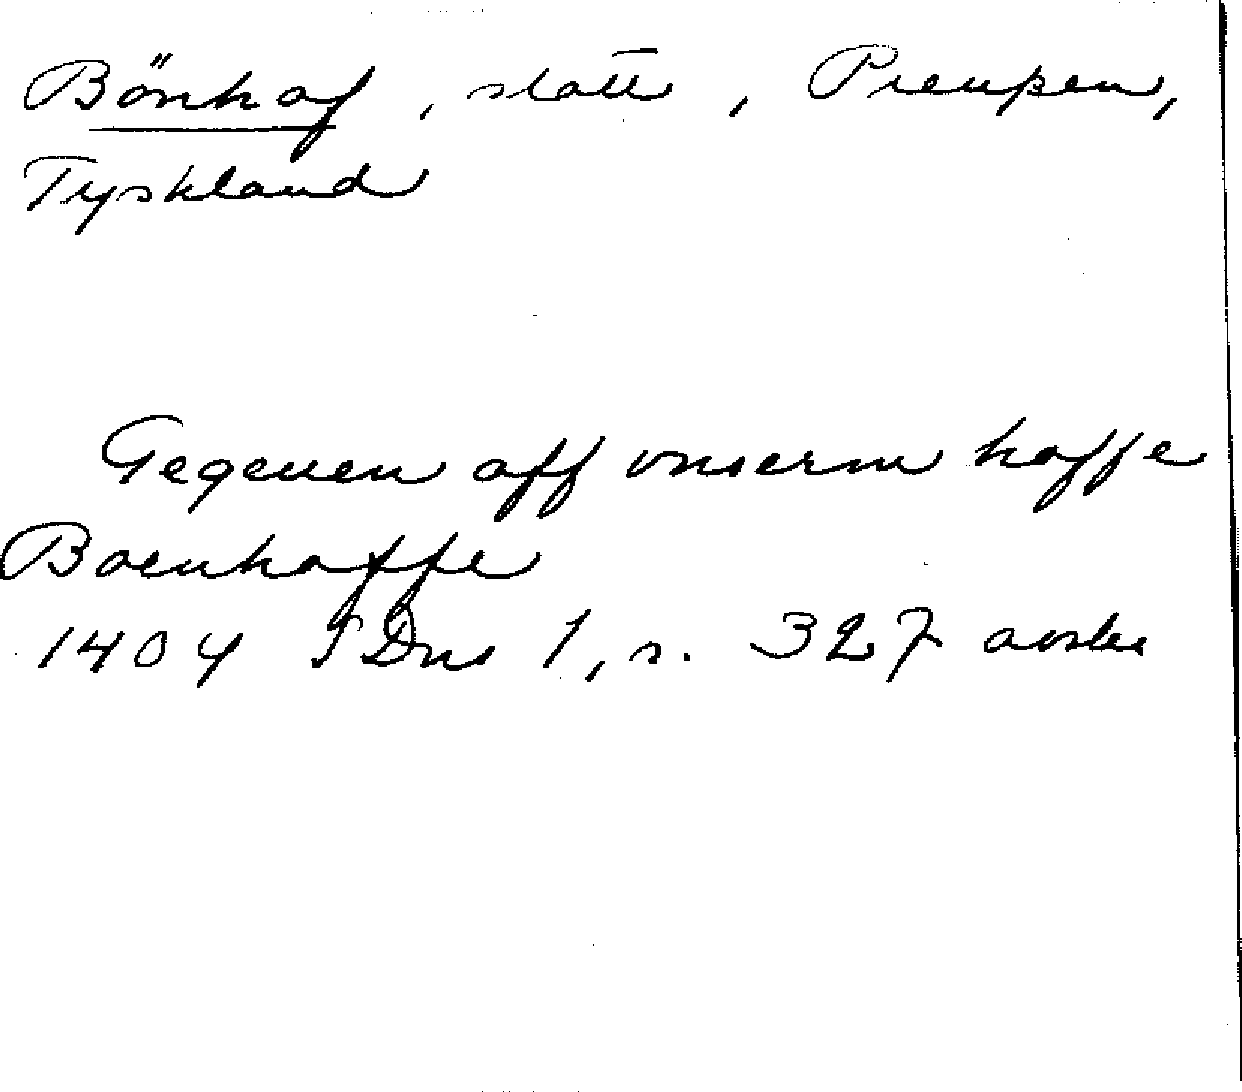 Bönhof, slott, Preußen,
Tyskland
Gegeuen off vnserm hoffe
Boenhoffe
1404 SDns 1, s. 327 avskr